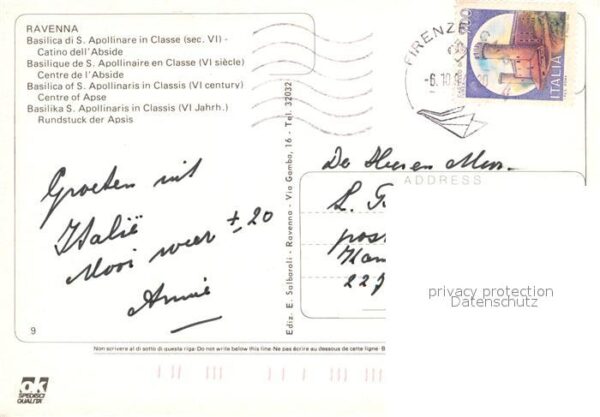 RAVENNA
Basilica di S. Apollinare in Classe (sec. VI) -
Catino dell'Abside
Basilique de S. Apollinaire en Classe (VI siècle)
Centre de l'Abside
Basilica of S. Apollinaris in Classis (VI century)
Centre of Apse
Basilika S. Apollinaris in Classis (VI Jahrh.)
Rundstuck der Apsis
Groeten uit
Italië
Mooi weer ± 20
Annie
9
Ediz. E. Salbaroli - Ravenna - Via Gamba, 16 - Tel. 32032
FIRENZE
-6.10
ITALIA
De Heren
ADDRESS
L.
post
227
privacy protection
Datenschutz
Non scrivere al di sotto di questa riga · Do not write below this line · Ne pas écrire au dessous de cette ligne · B
ok
SPEDISCI
QUALITÀ